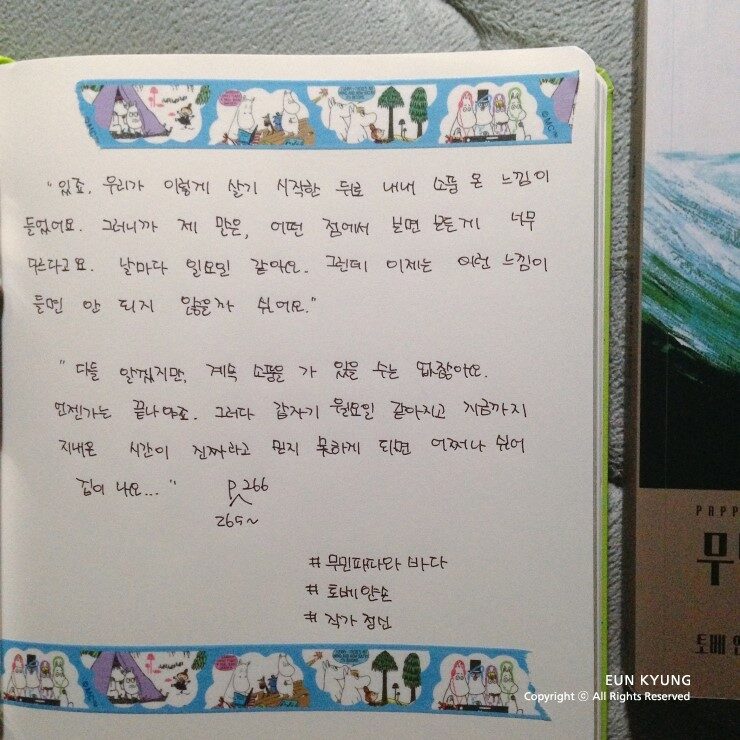 "있죠. 우리가 이렇게 살기 시작한 뒤로 내내 소풍 온 느낌이
들었어요. 그러니까 제 말은, 어떤 점에서 보면 모든게 너무
다르다고요. 날마다 일요일 같아요. 그런데 이제는 이런 느낌이
들면 안 되지 않을까 싶어요."
"다들 알겠지만, 계속 소풍을 가 있을 수는 없잖아요.
언젠가는 끝나야죠. 그러다 갑자기 월요일 같아지고 지금까지
지내온 시간이 진짜라고 믿지 못하게 되면 어쩌나 싶어
겁이 나요..." P 266
265~
#무민파파와 바다
#토베얀손
#작가정신
PAPP
무
토베 얀
EUN KYUNG
Copyright ⓒ All Rights Reserved